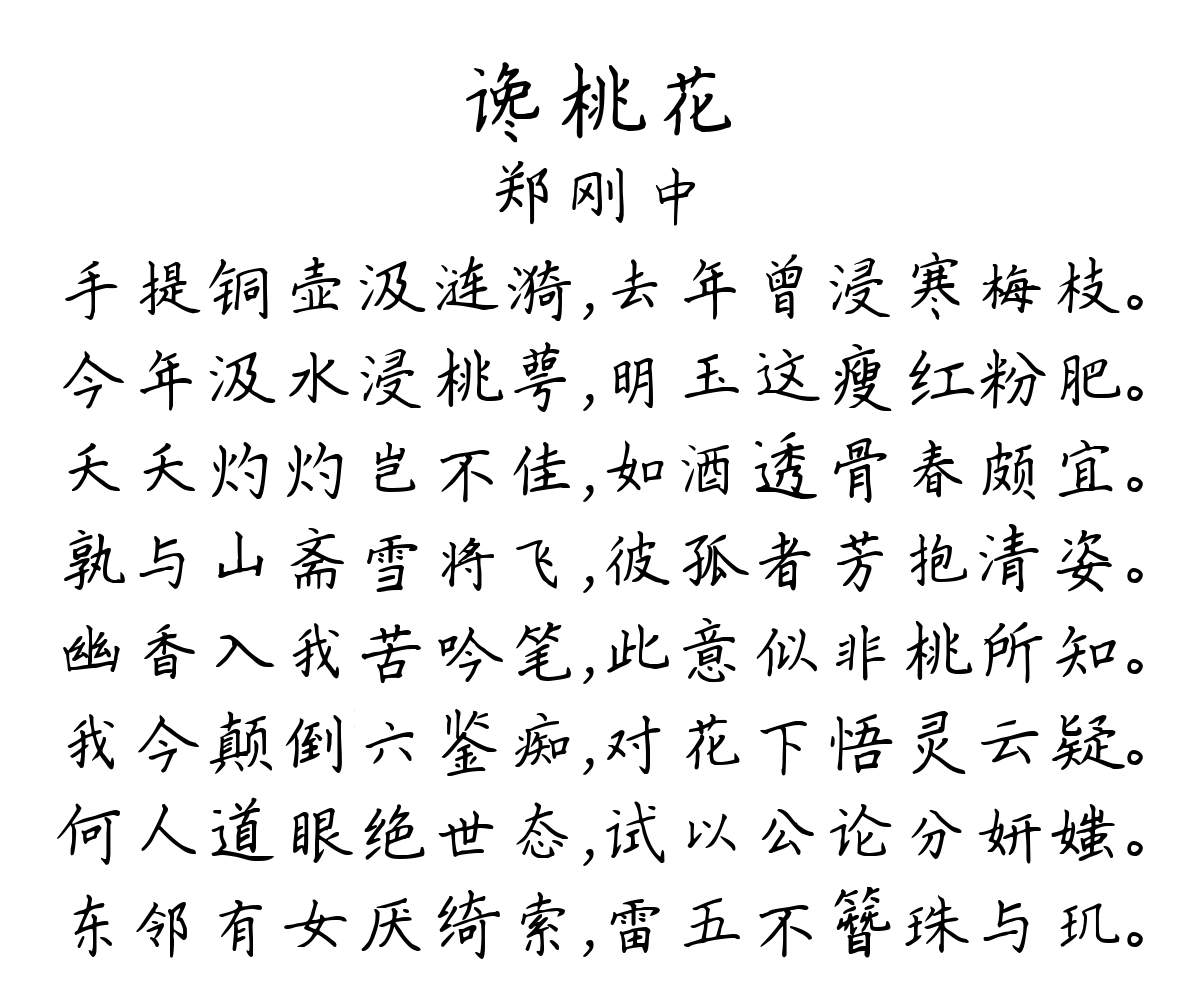 谗桃花
郑刚中
手提铜壶汲涟漪,去年曾浸寒梅枝。
今年汲水浸桃萼,明玉这瘦红粉肥。
夭夭灼灼岂不佳,如酒透骨春颇宜。
孰与山斋雪将飞,彼孤者芳抱清姿。
幽香入我苦吟笔,此意似非桃所知。
我今颠倒六鉴痴,对花下悟灵云疑。
何人道眼绝世态,试以公论分妍媸。
东邻有女厌绮索,雷五不簪珠与玑。